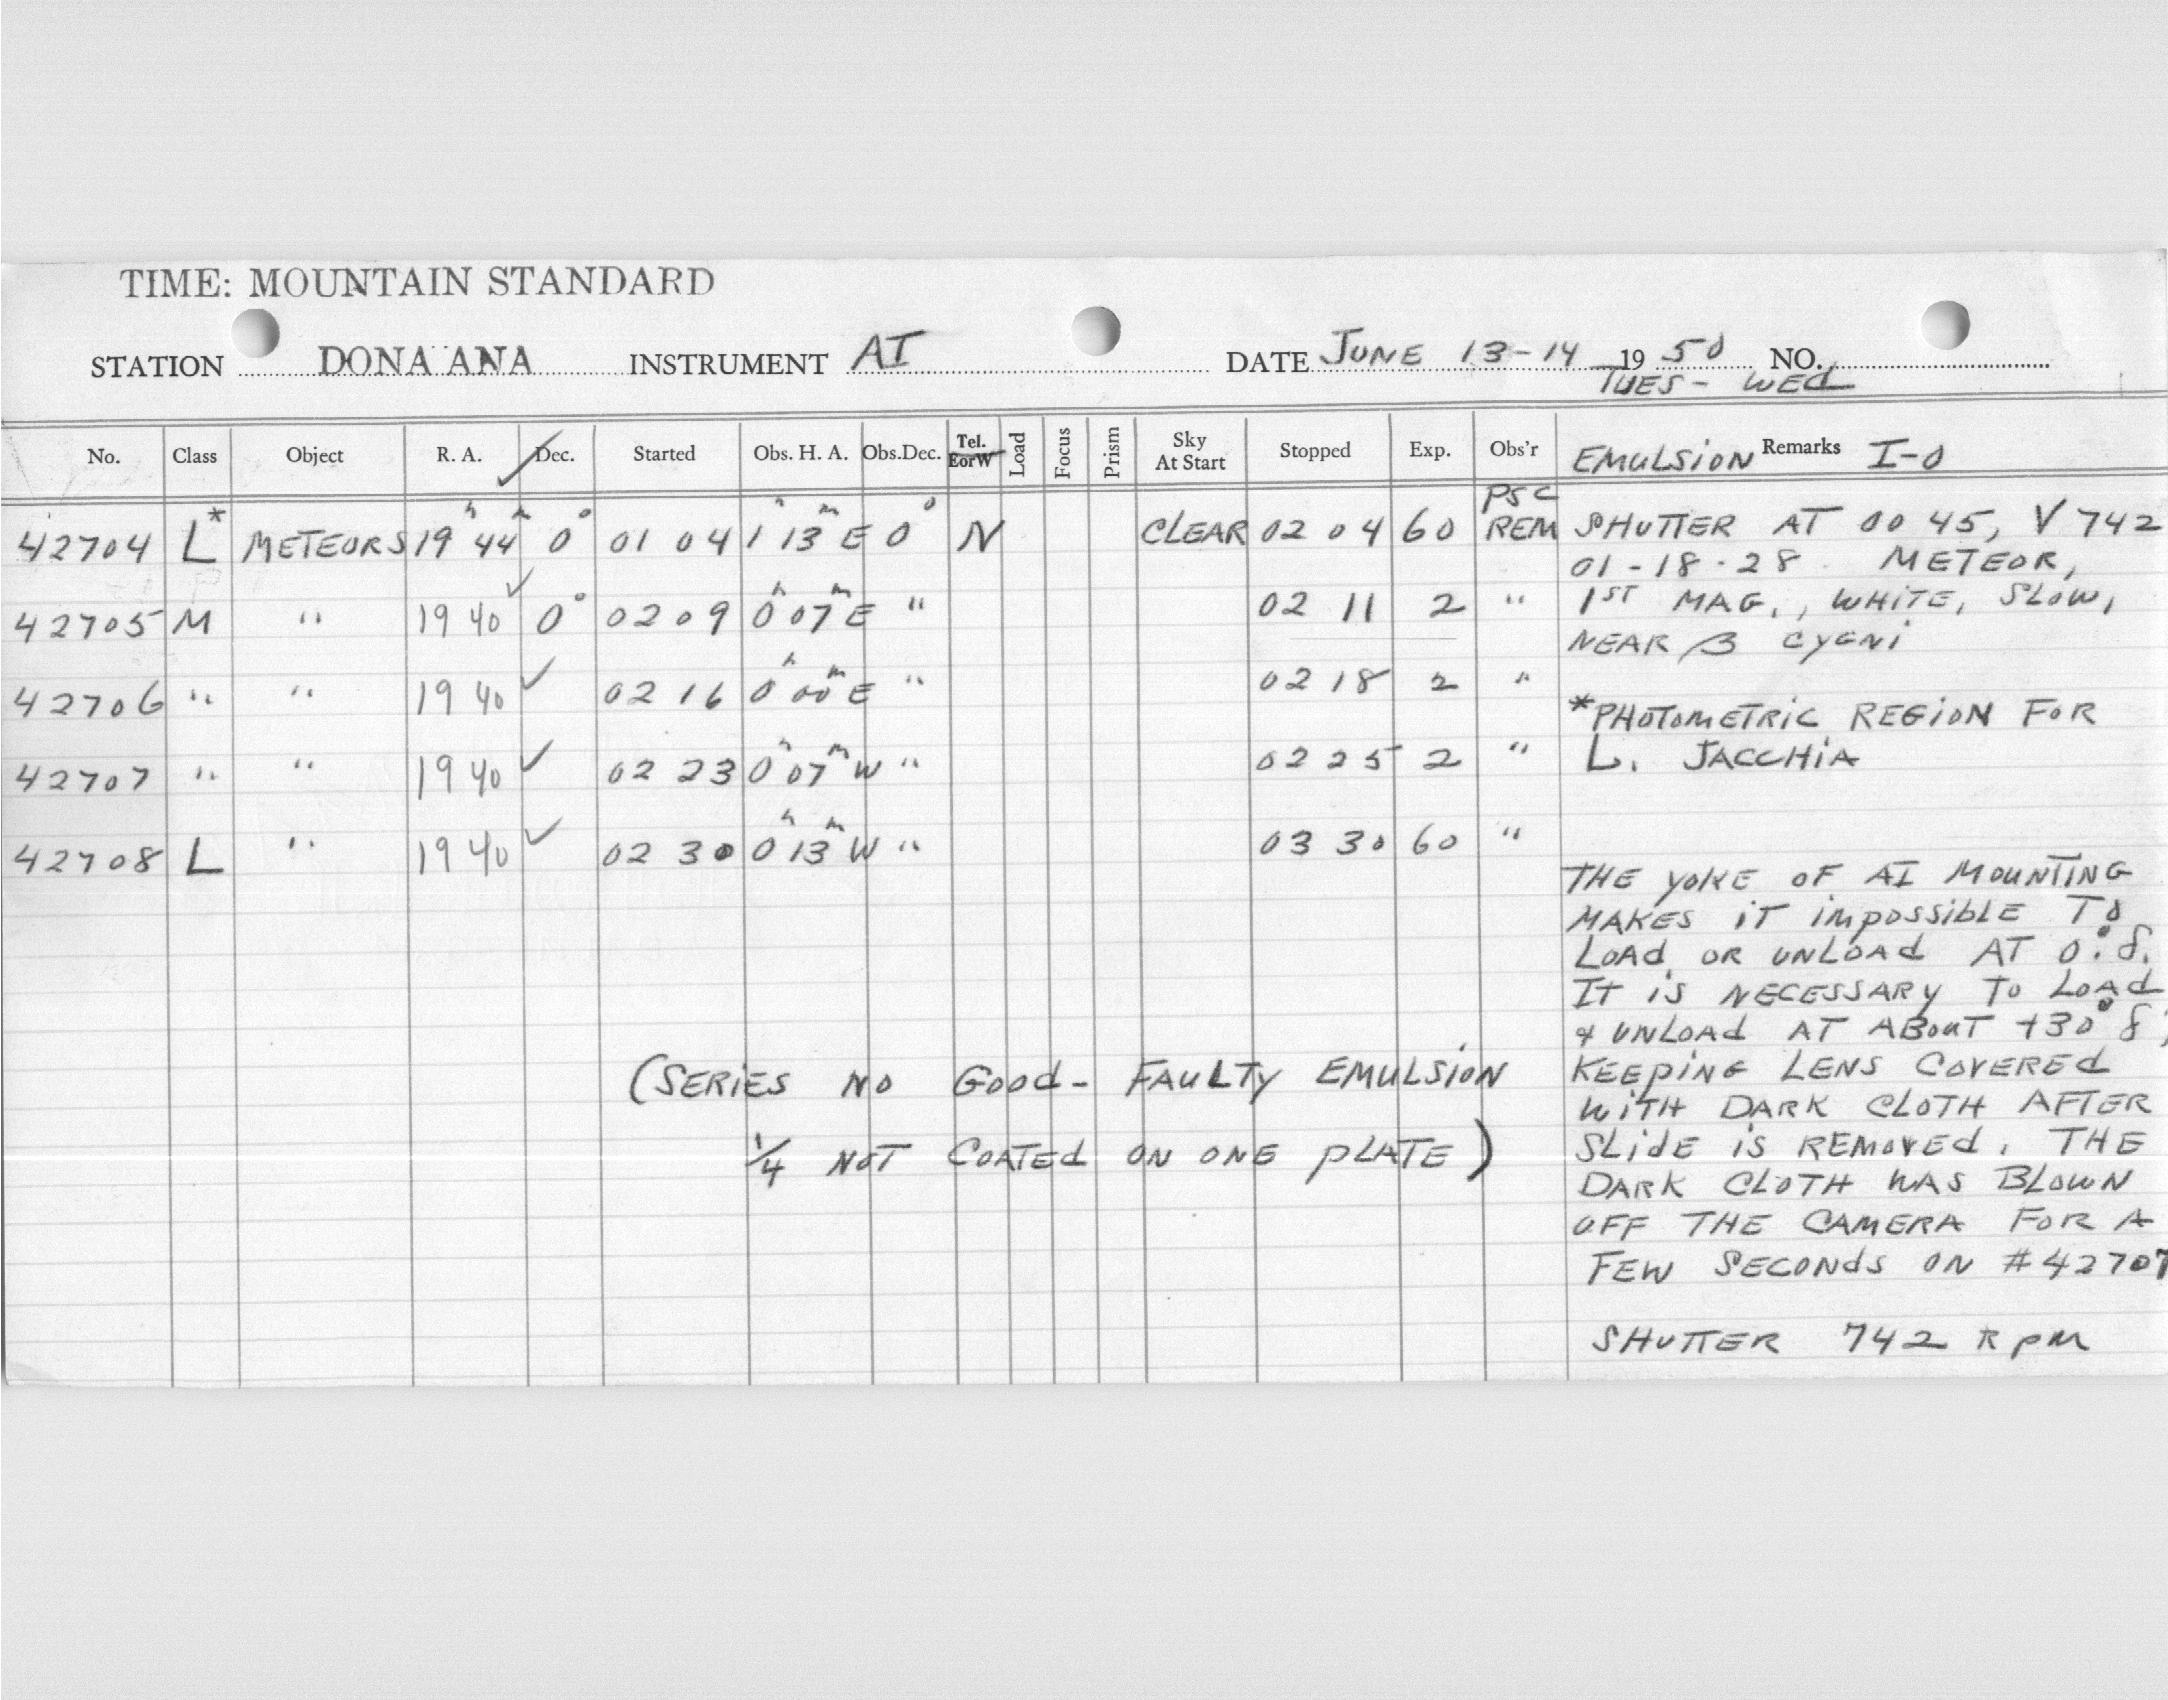 TIME: MOUNTAIN STANDARD
STATION DONA ANA INSTRUMENT AI DATE JUNE 13-14 1950 NO.
TUES - WED
No. Class Object R. A. Dec. Started Obs. H. A. Obs.Dec. Tel. EorW Load Focus Prism Sky At Start Stopped Exp. Obs'r EMULSION Remarks I-O
PSC
42704 L* METEORS 19h 44m 0° 01 04 1h 13m E 0° N CLEAR 02 04 60 REM SHUTTER AT 00 45, V 742
01-18-28 METEOR,
42705 M " 19 40 ✓ 0° 02 09 0h 07m E " 02 11 2 " 1ST MAG., WHITE, SLOW,
NEAR β CYGNI
42706 " " 19 40 ✓ 02 16 0h 00m E " 02 18 2 "
*PHOTOMETRIC REGION FOR
42707 " " 19 40 ✓ 02 23 0h 07m W " 02 25 2 " L. JACCHIA
42708 L " 19 40 ✓ 02 30 0h 13m W " 03 30 60 "
THE YOKE OF AI MOUNTING
MAKES IT IMPOSSIBLE TO
LOAD OR UNLOAD AT 0° δ.
IT IS NECESSARY TO LOAD
& UNLOAD AT ABOUT +30° δ,
(SERIES NO GOOD - FAULTY EMULSION
KEEPING LENS COVERED
WITH DARK CLOTH AFTER
1/4 NOT COATED ON ONE PLATE)
SLIDE IS REMOVED. THE
DARK CLOTH WAS BLOWN
OFF THE CAMERA FOR A
FEW SECONDS ON #42707
SHUTTER 742 RPM